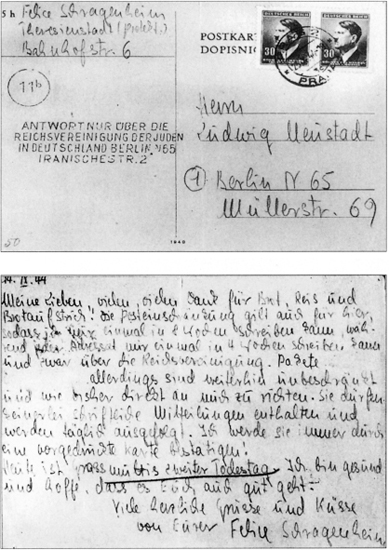 sh Felice Schragenheim
Theresienstadt (Protekt.)
Bahnhofstr. 6
POSTKAR
DOPISNIC
30 30
PRA
11b
ANTWORT NUR ÜBER DIE
REICHSVEREINIGUNG DER JUDEN
IN DEUTSCHLAND BERLIN N65
IRANISCHESTR. 2
Herrn
Ludwig Neustadt
1 Berlin N 65
Müllerstr. 69
50
1940
44
Meine Lieben, vielen, vielen Dank für Brot, Reis und
Brotaufstrich! Die Posteinschränkung gilt auch für hier,
sodass ich nur einmal in 8 Wochen schreiben kann, wäh-
rend jeder Adressat mir einmal in 4 Wochen schreiben kann
und zwar über die Reichsvereinigung. Pakete
allerdings sind weiterhin unbeschränkt
und wie bisher direkt an mich zu richten. Sie dürfen
keinerlei schriftliche Mitteilungen enthalten und
werden täglich ausgefolgt. Ich werde sie immer durch
eine vorgedruckte Karte bestätigen.
Heute ist zweiter Todestag. Ich bin gesund
und hoffe, dass es Euch auch gut geht.
Viele herzliche Grüsse und Küsse
von Eurer Felice Schragenheim